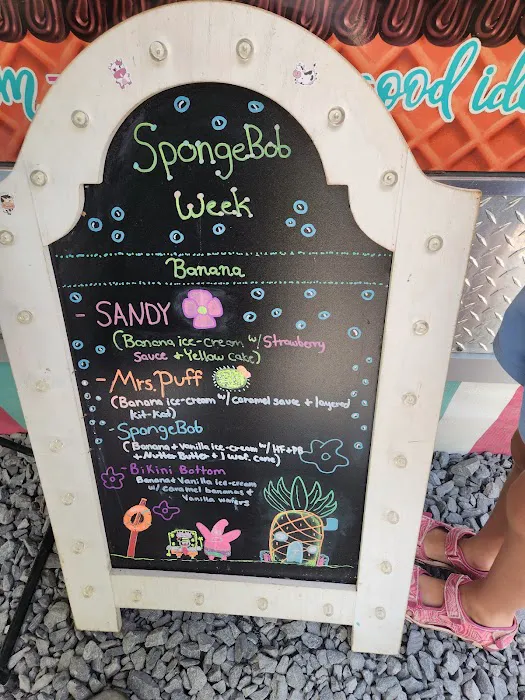 ood ide
SpongeBob
Week
Banana
- SANDY
(Banana ice-cream w/ Strawberry
Sauce + Yellow cake)
- Mrs. Puff
(Banana ice-cream w/ caramel sauce + layered
Kit-Kat)
- SpongeBob
(Banana + Vanilla ice-cream w/ HF + PB
+ Nutter Butter + 1 waf. cone)
- Bikini Bottom
Banana + Vanilla ice-cream
w/ caramel bananas +
Vanilla wafers